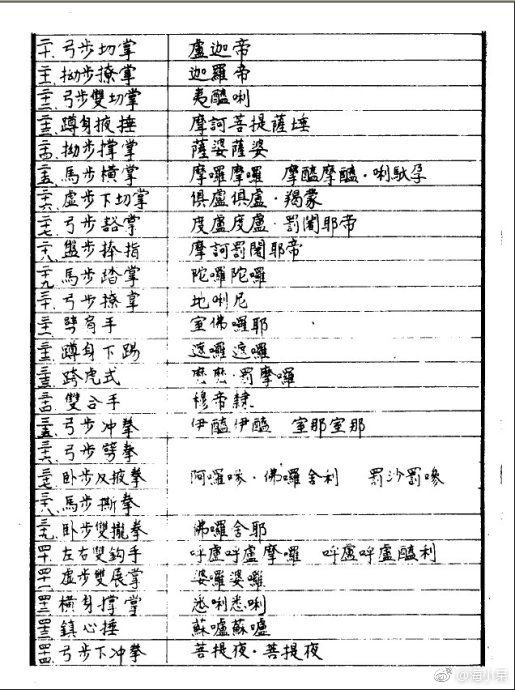 二十、弓步切掌 盧迦帝
二一、拗步撩掌 迦羅帝
二二、弓步雙切掌 夷醯唎
二三、蹲身掖捶 摩訶菩提薩埵
二四、拗步撑掌 薩婆薩婆
二五、馬步橫掌 摩囉摩囉 摩醯摩醯·唎馱孕
二六、虛步下切掌 俱盧俱盧·羯蒙
二七、弓步谿掌 度盧度盧·罰闍耶帝
二八、盤步拎指 摩訶罰闍耶帝
二九、馬步踏掌 陀囉陀囉
三十、弓步撩掌 地唎尼
三一、劈肩手 室佛囉耶
三二、蹲身下踢 遮囉遮囉
三三、跨虎式 麼麼·罰摩囉
三四、雙合手 穆帝隸
三五、弓步冲拳 伊醯伊醯 室那室那
三六、弓步劈拳
三七、卧步反掖拳 阿羅嘇·佛囉舍利 罰沙罰嘇
三八、馬步撕拳
三九、卧步雙攏拳 佛囉舍耶
四十、左右雙鈎手 呼盧呼盧摩囉 呼盧呼盧醯利
四一、虛步雙展掌 娑囉娑囉
四二、橫身撑掌 悉唎悉唎
四三、鎮心捶 蘇嚧蘇嚧
四四、弓步下冲拳 菩提夜·菩提夜